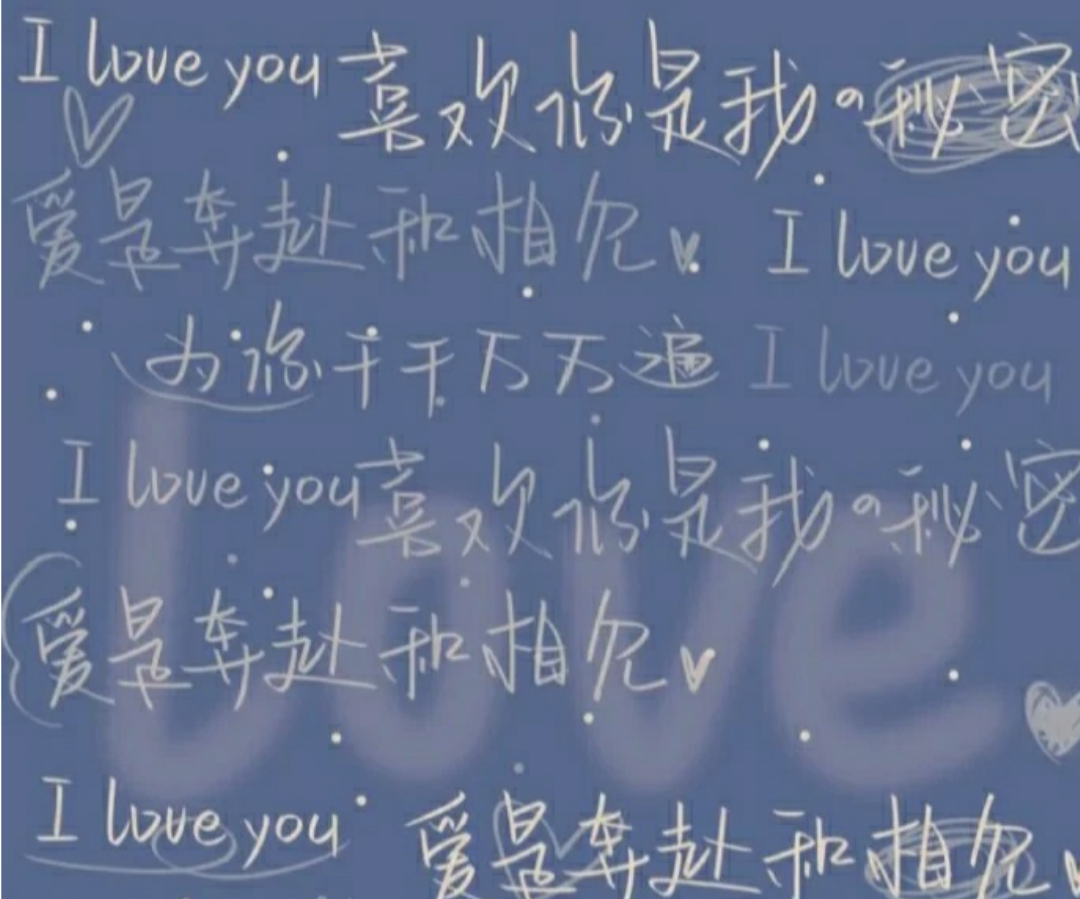 I love you 喜欢你是我的秘密
爱是奔赴和相见
I love you
为你千千万万遍 I love you
I love you 喜欢你是我的秘密
爱是奔赴和相见
love
I love you 爱是奔赴和相见